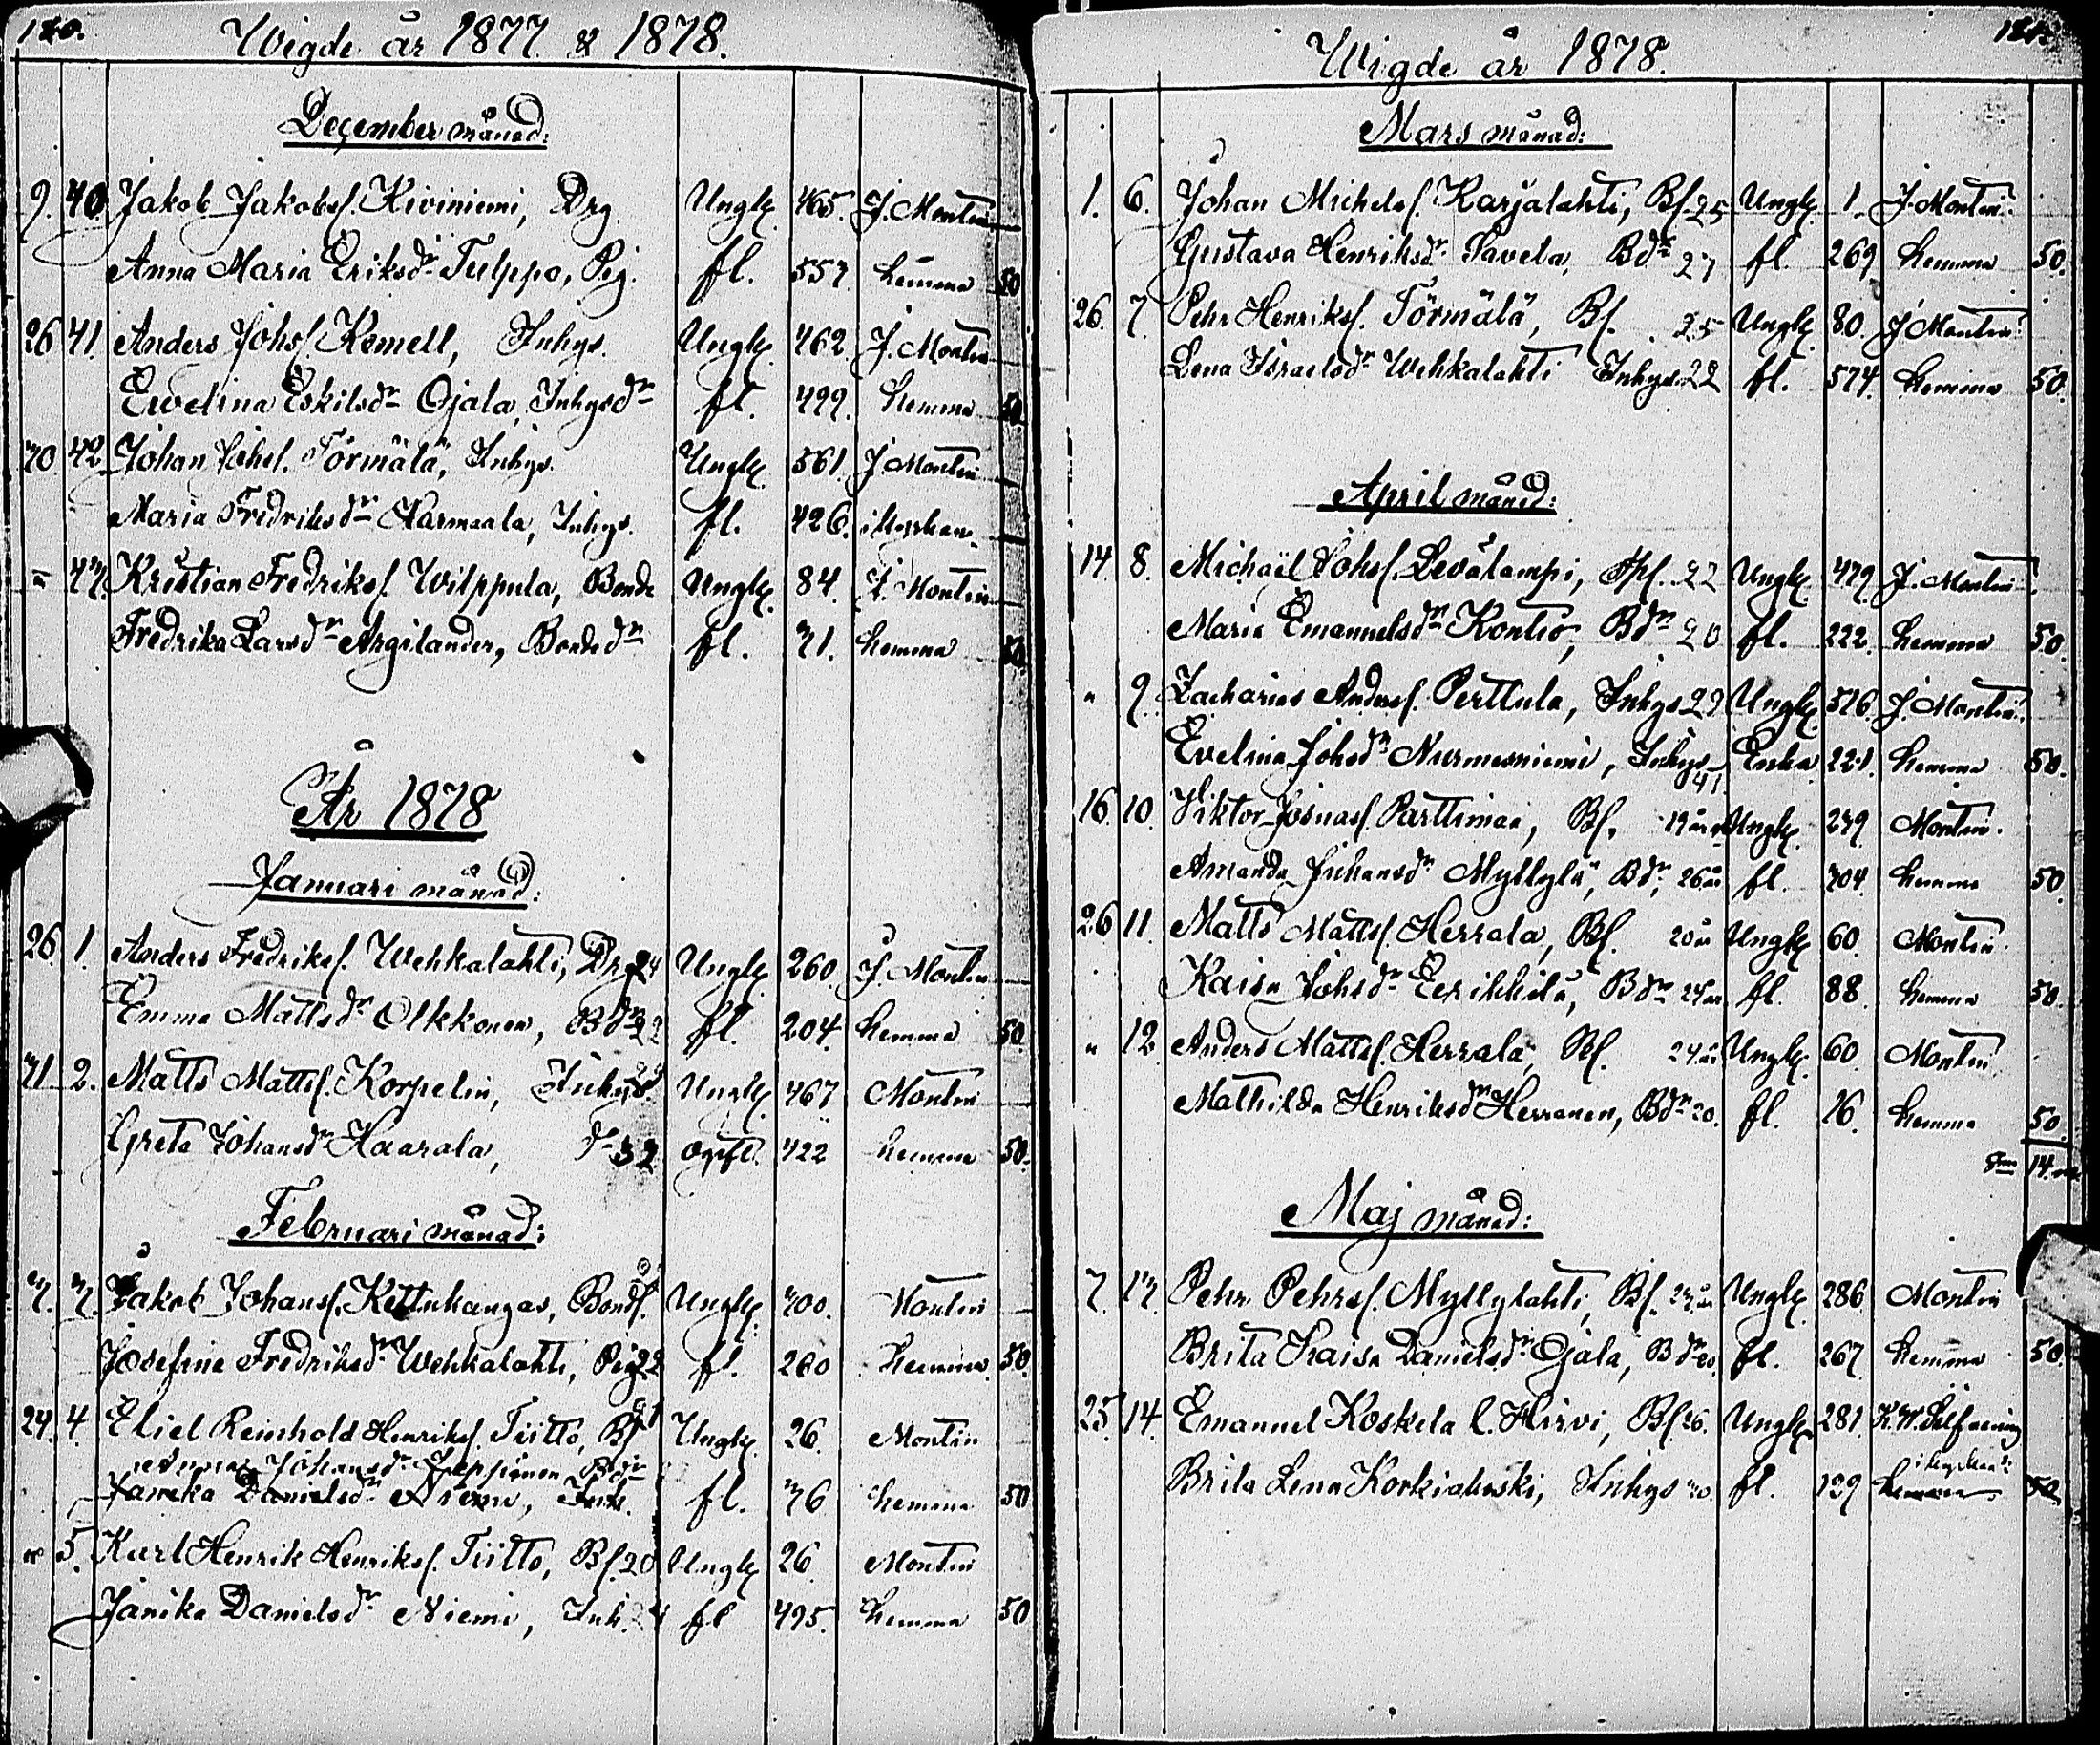 120.
Wigde år 1877 & 1878.
December månad:
9. 40 Jakob Jakobsf. Kiviniemi, Drg. Ungk. 465. J. Montin
Anna Maria Eriksdr Tulppo, Pig. fl. 557. hemma 50
26 41. Anders Johsf. Kemell, Inhys. Ungk. 462. J. Montin
Ewelina Eskilsdr Ojala, Inhysdr fl. 499. hemma 50
30 42 Johan Johsf. Törmälä, Inhys. Ungk. 561. J. Montin
Maria Fredriksdr Karmaala, Inhys. fl. 426. i kyrkan
" 43. Kristian Fredriksf. Wilppula, Bonde Ungk. 84. J. Montin
Fredrika Larsdr Argilander, Bondedr fl. 31. hemma 50
År 1878
Januari månad:
26. 1. Anders Fredriksf. Wehkalahti, Drg 24 Ungk. 260. J. Montin
Emma Mattsdr Olkkonen, Bdr 22 fl. 204. hemma 50.
31 2. Matts Mattsf. Korpelin, Inhys. Ungk. 467 Montin
Greta Johansdr Haarala, dr 32 ogift. 422 hemma 50.
Februari månad:
3. 3. Jakob Johansf. Kettukangas, Bondf. Ungk. 300. Montin
Josefina Fredriksdr Wehkalahti, Pig 22 fl. 260 hemma. 50.
24. 4. Eliel Reinhold Henriksf. Tiitto, Bf 21 Ungk. 26. Montin
Anna Johansdr Leppänen Bdr
Janika Danielsdr Niemi, Inh. fl. 36 hemma 50
" 5. Karl Henrik Henriksf. Tiitto, Bf. 20 Ungk 26. Montin
Janika Danielsdr Niemi, Inh. 24 fl 495. hemma 50
121.
Wigde år 1878.
Mars månad:
1. 6. Johan Michelsf. Karjalahti, Bf. 25 Ungk. 1. J. Montin.
Gustava Henriksdr Savela, Bdr 27 fl. 269 hemma 50.
26. 7. Pehr Henriksf. Törmälä, Bf. 25 Ungk. 80. J. Montin.
Lena Israelsdr Wehkalahti Inhys. 22 fl. 574. hemma 50.
April månad:
14. 8. Michaël Johsf. Levälampi, 22 Ungk. 479. J. Montin.
Maria Emanuelsdr Kontio, Bdr 20 fl. 222. hemma 50.
" 9. Zacharias Andersf. Perttula, Inhys 29 Ungk. 576. J. Montin.
Evelina Johsdr Nurmesniemi, Inhys 41 Enka 221. hemma 50.
16. 10. Viktor Josuasf. Parttimaa, Bf. 19 år Ungk. 239 Montin.
Amanda Juhansdr Myllylä, Bdr, 26 år fl. 304. hemma 50
26 11. Matts Mattsf. Herrala, Bf. 20 år Ungk. 60. Montin.
Kaisa Johsdr Eerikkilä, Bdr 24 år fl. 88. hemma 50.
" 12. Anders Mattsf. Herrala, Bf. 24 år Ungk. 60. Montin
Mathilda Henriksdr Herranen, Bdr 20. fl. 26. hemma 50
Sma 14.
Maj månad:
7. 13. Pehr Pehrsf. Myllylahti, Bf. 23 år Ungk. 286 Montin
Brita Kaisa Danielsdr Ojala, Bdr 20 fl. 267. hemma 50.
25. 14. Emanuel Koskela l. Hirvi, Bf. 26. Ungk. 281.
i kyrkan
Brita Lena Korkiakoski, Inhys 30. fl. 139 hemma 50